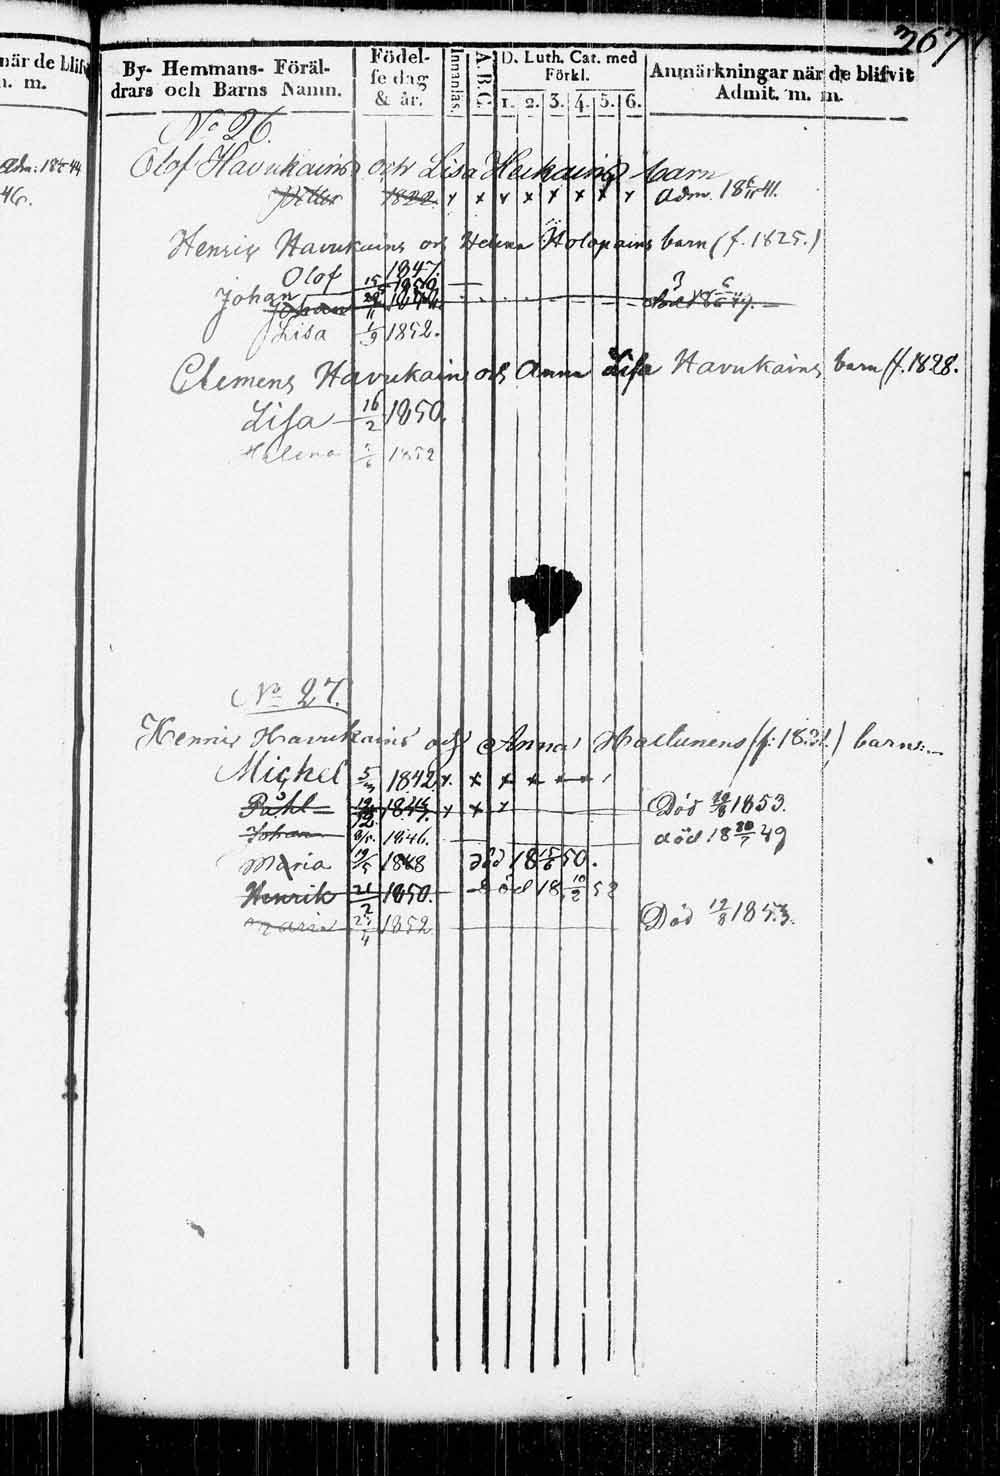 367
när de blifv
n. m.
By- Hemmans- Föräl-
drars och Barns Namn.
Födel-
se dag
& år.
Innanläs.
A.B.C.
D. Luth. Cat. med
Förkl.
1. 2. 3. 4. 5. 6.
Anmärkningar när de blifvit
Admit. m. m.
adm: 18 44
46.
No 26.
Olof Havukains och Lisa Heikains barn
1822. x x x x x x x x adm. 18 41.
Henrik Havukains och Helena Holopains barn (f. 1825.)
Olof 1847.
Johan 15 1850.
Johan
Lisa 1/9 1852.
Clemens Havukains och Anna Lisa Havukains barn (f. 1828.
Lisa 16/2 1850.
Helena /6 1852
No 27.
Hennis Havukains och Anna Hallunens (f: 18 .) barn:
Michel 5/ 1842 x. x x x x x
Påhl 19/12 18 x x Död /8 1853.
Johan 1846. död 18 30/7 49
Maria 19/5 1848 död 18 15/6 50.
Henrik 21/2 1850. död 18 10/2 52
Maria /4 1852 Död 12/8 185 .